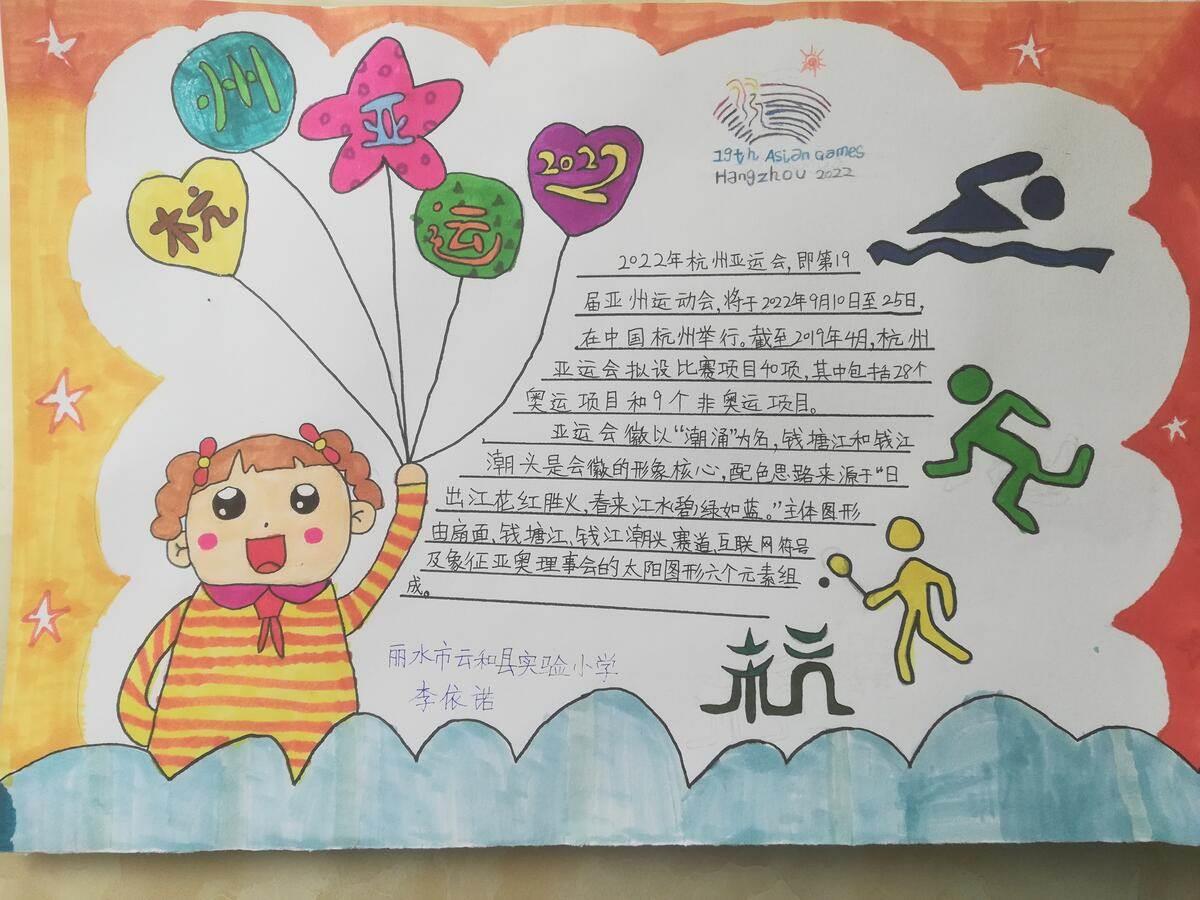 杭
州
亚
运
2022
19th Asian Games
Hangzhou 2022
2022年杭州亚运会,即第19
届亚州运动会,将于2022年9月10日至25日,
在中国杭州举行。截至2019年4月,杭州
亚运会拟设比赛项目40项,其中包括28个
奥运项目和9个非奥运项目。
亚运会徽以“潮涌”为名,钱塘江和钱江
潮头是会徽的形象核心,配色思路来源于“日
出江花红胜火,春来江水碧绿如蓝。”主体图形
由扇面、钱塘江、钱江潮头、赛道、互联网符号
及象征亚奥理事会的太阳图形六个元素组
成。
丽水市云和县实验小学
李依诺
杭